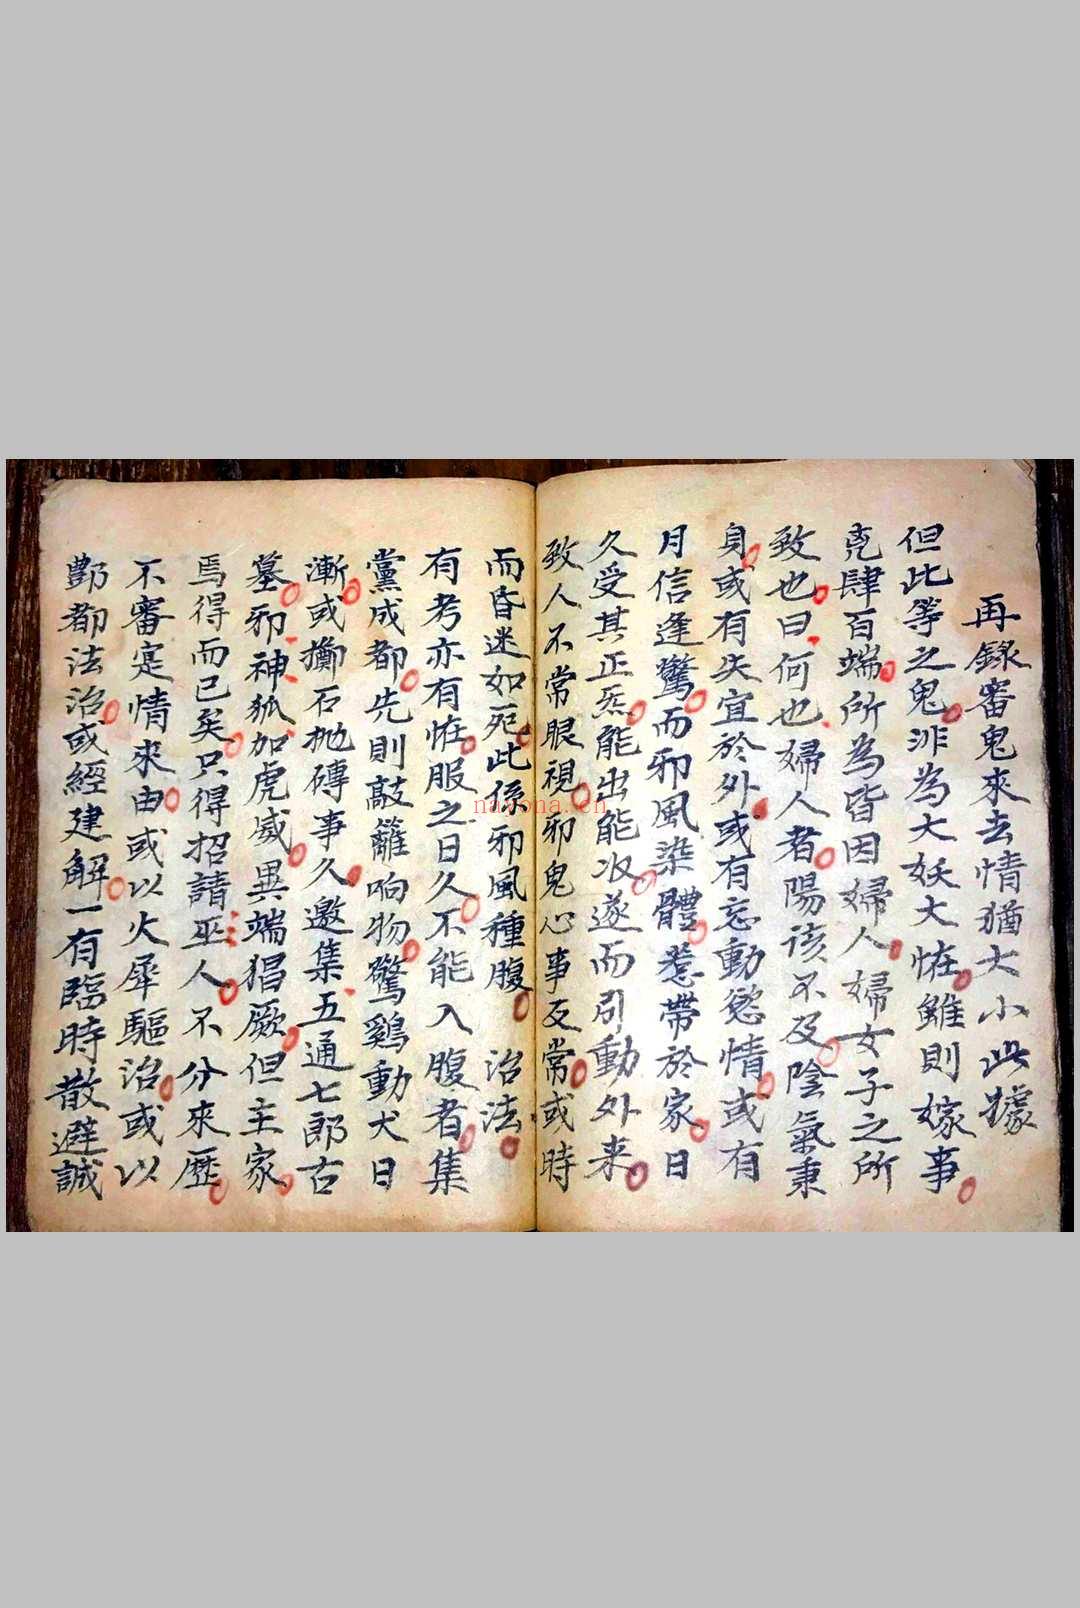 再錄審鬼來去情猶大小此據
但此等之鬼非為大妖大恠雖則嫁事
堯肆百端所為皆因婦人婦女子之所
致也曰何也婦人者陽該不及陰氣秉
身或有失宜於外或有忘動慾情或有
月信逢驚而邪風染體惹帶於家日
久受其正炁能出能收遂而引動外来
致人不常眼視邪鬼心事反常或時
而昏迷如死此係邪風種腹 治法
有考亦有恠服之日久不能入腹者集
黨成都先則敲籬响物驚鷄動犬日
漸或擲石拋磚事久邀集五通七郎古
墓邪神狐加虎威異端猖厥但主家
焉得而已矣只得招請巫人不分來歷
不審寔情來由或以火犀驅治或以
酆都法治或經建解一有臨時散避誠
nayona.cn